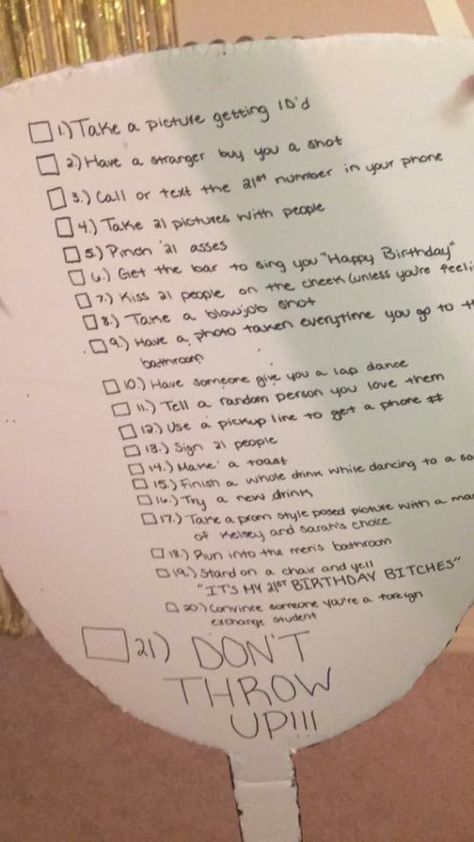 1) Take a picture getting ID'd
2) Have a stranger buy you a shot
3.) Call or text the 21st number in your phone
4.) Take 21 pictures with people
5.) Pinch 21 asses
6.) Get the bar to sing you "Happy Birthday"
7.) Kiss 21 people on the cheek (unless you're feeli
8.) Take a blowjob shot
9.) Have a photo taken everytime you go to th
bathroom
10.) Have someone give you a lap dance
11.) Tell a random person you love them
12.) Use a pickup line to get a phone #
13.) Sign 21 people
14.) Make a toast
15.) Finish a whole drink while dancing to a so
16.) Try a new drink
17.) Take a prom style posed picture with a ma
of Kelsey and Sarah's choice
18.) Run into the men's bathroom
19.) Stand on a chair and yell
"IT'S MY 21ST BIRTHDAY BITCHES"
20.) Convince someone you're a foreign
exchange student
21) DON'T
THROW
UP!!!